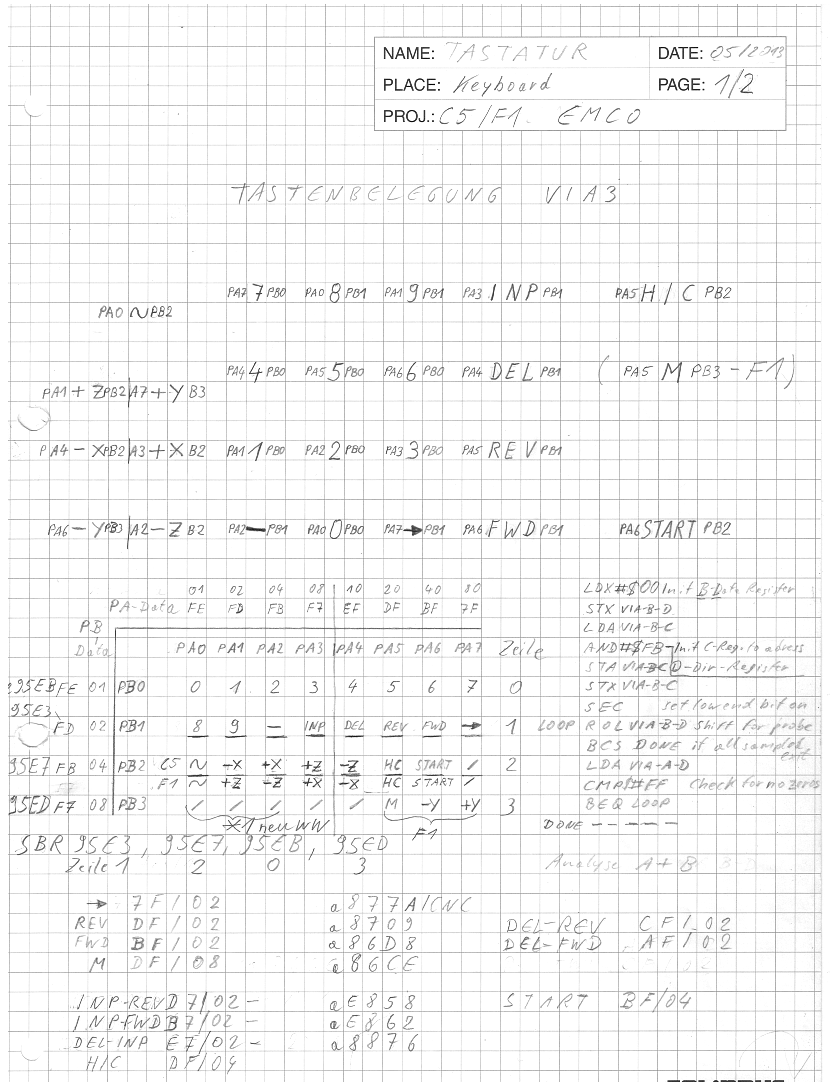 NAME: TASTATUR DATE: 05/2013
PLACE: Keyboard PAGE: 1/2
PROJ.: C5/F1. EMCO
TASTENBELEGUNG VIA3
PA7 7 PB0 PA0 8 PB1 PA1 9 PB1 PA3 INP PB1 PA5 H/C PB2
PA0 ~ PB2
PA4 4 PB0 PA5 5 PB0 PA6 6 PB0 PA4 DEL PB1 ( PA5 M PB3 - F1)
PA1 + Z PB2 A7 + Y B3
PA4 - X PB2 A3 + X B2 PA1 1 PB0 PA2 2 PB0 PA3 3 PB0 PA5 REV PB1
PA6 - Y PB3 A2 - Z B2 PA2 - PB1 PA0 0 PB0 PA7 → PB1 PA6 FWD PB1 PA6 START PB2
01 02 04 08 10 20 40 80 LDX#$00 Init B-Data Register
PA-Data FE FD FB F7 EF DF BF 7F STX VIA-B-D
PB LDA VIA-B-C
Data PA0 PA1 PA2 PA3 PA4 PA5 PA6 PA7 Zeile AND#$FB-Init C-Reg. to adress
STA VIA-BC D-Dir-Register
95EB FE 01 PB0 0 1 2 3 4 5 6 7 0 STX VIA-B-C
95E3 SEC set low end bit on
FD 02 PB1 8 9 - INP DEL REV FWD → 1 LOOP ROL VIA-B-D Shift for probe
BCS DONE if all sampled exit
95E7 FB 04 PB2 C5 ~ -X +X +Z -Z HC START / 2 LDA VIA-A-D
F1 ~ +Z -Z +X -X HC START / CMP#$FF check for no zeros
95ED F7 08 PB3 / / / / / M -Y +Y 3 BEQ LOOP
X1 neu WW F1 DONE -----
SBR 95E3, 95E7, 95EB, 95ED
Zeile 1 2 0 3 Analyse A+B
→ 7F/02 a877A/CNC
REV DF/02 a8709 DEL-REV CF/02
FWD BF/02 a86D8 DEL-FWD AF/02
M DF/08 a86CE
INP-REV D7/02 - aE858 START BF/04
INP-FWD B7/02 - aE862
DEL-INP E7/02 - a8876
H/C DF/04